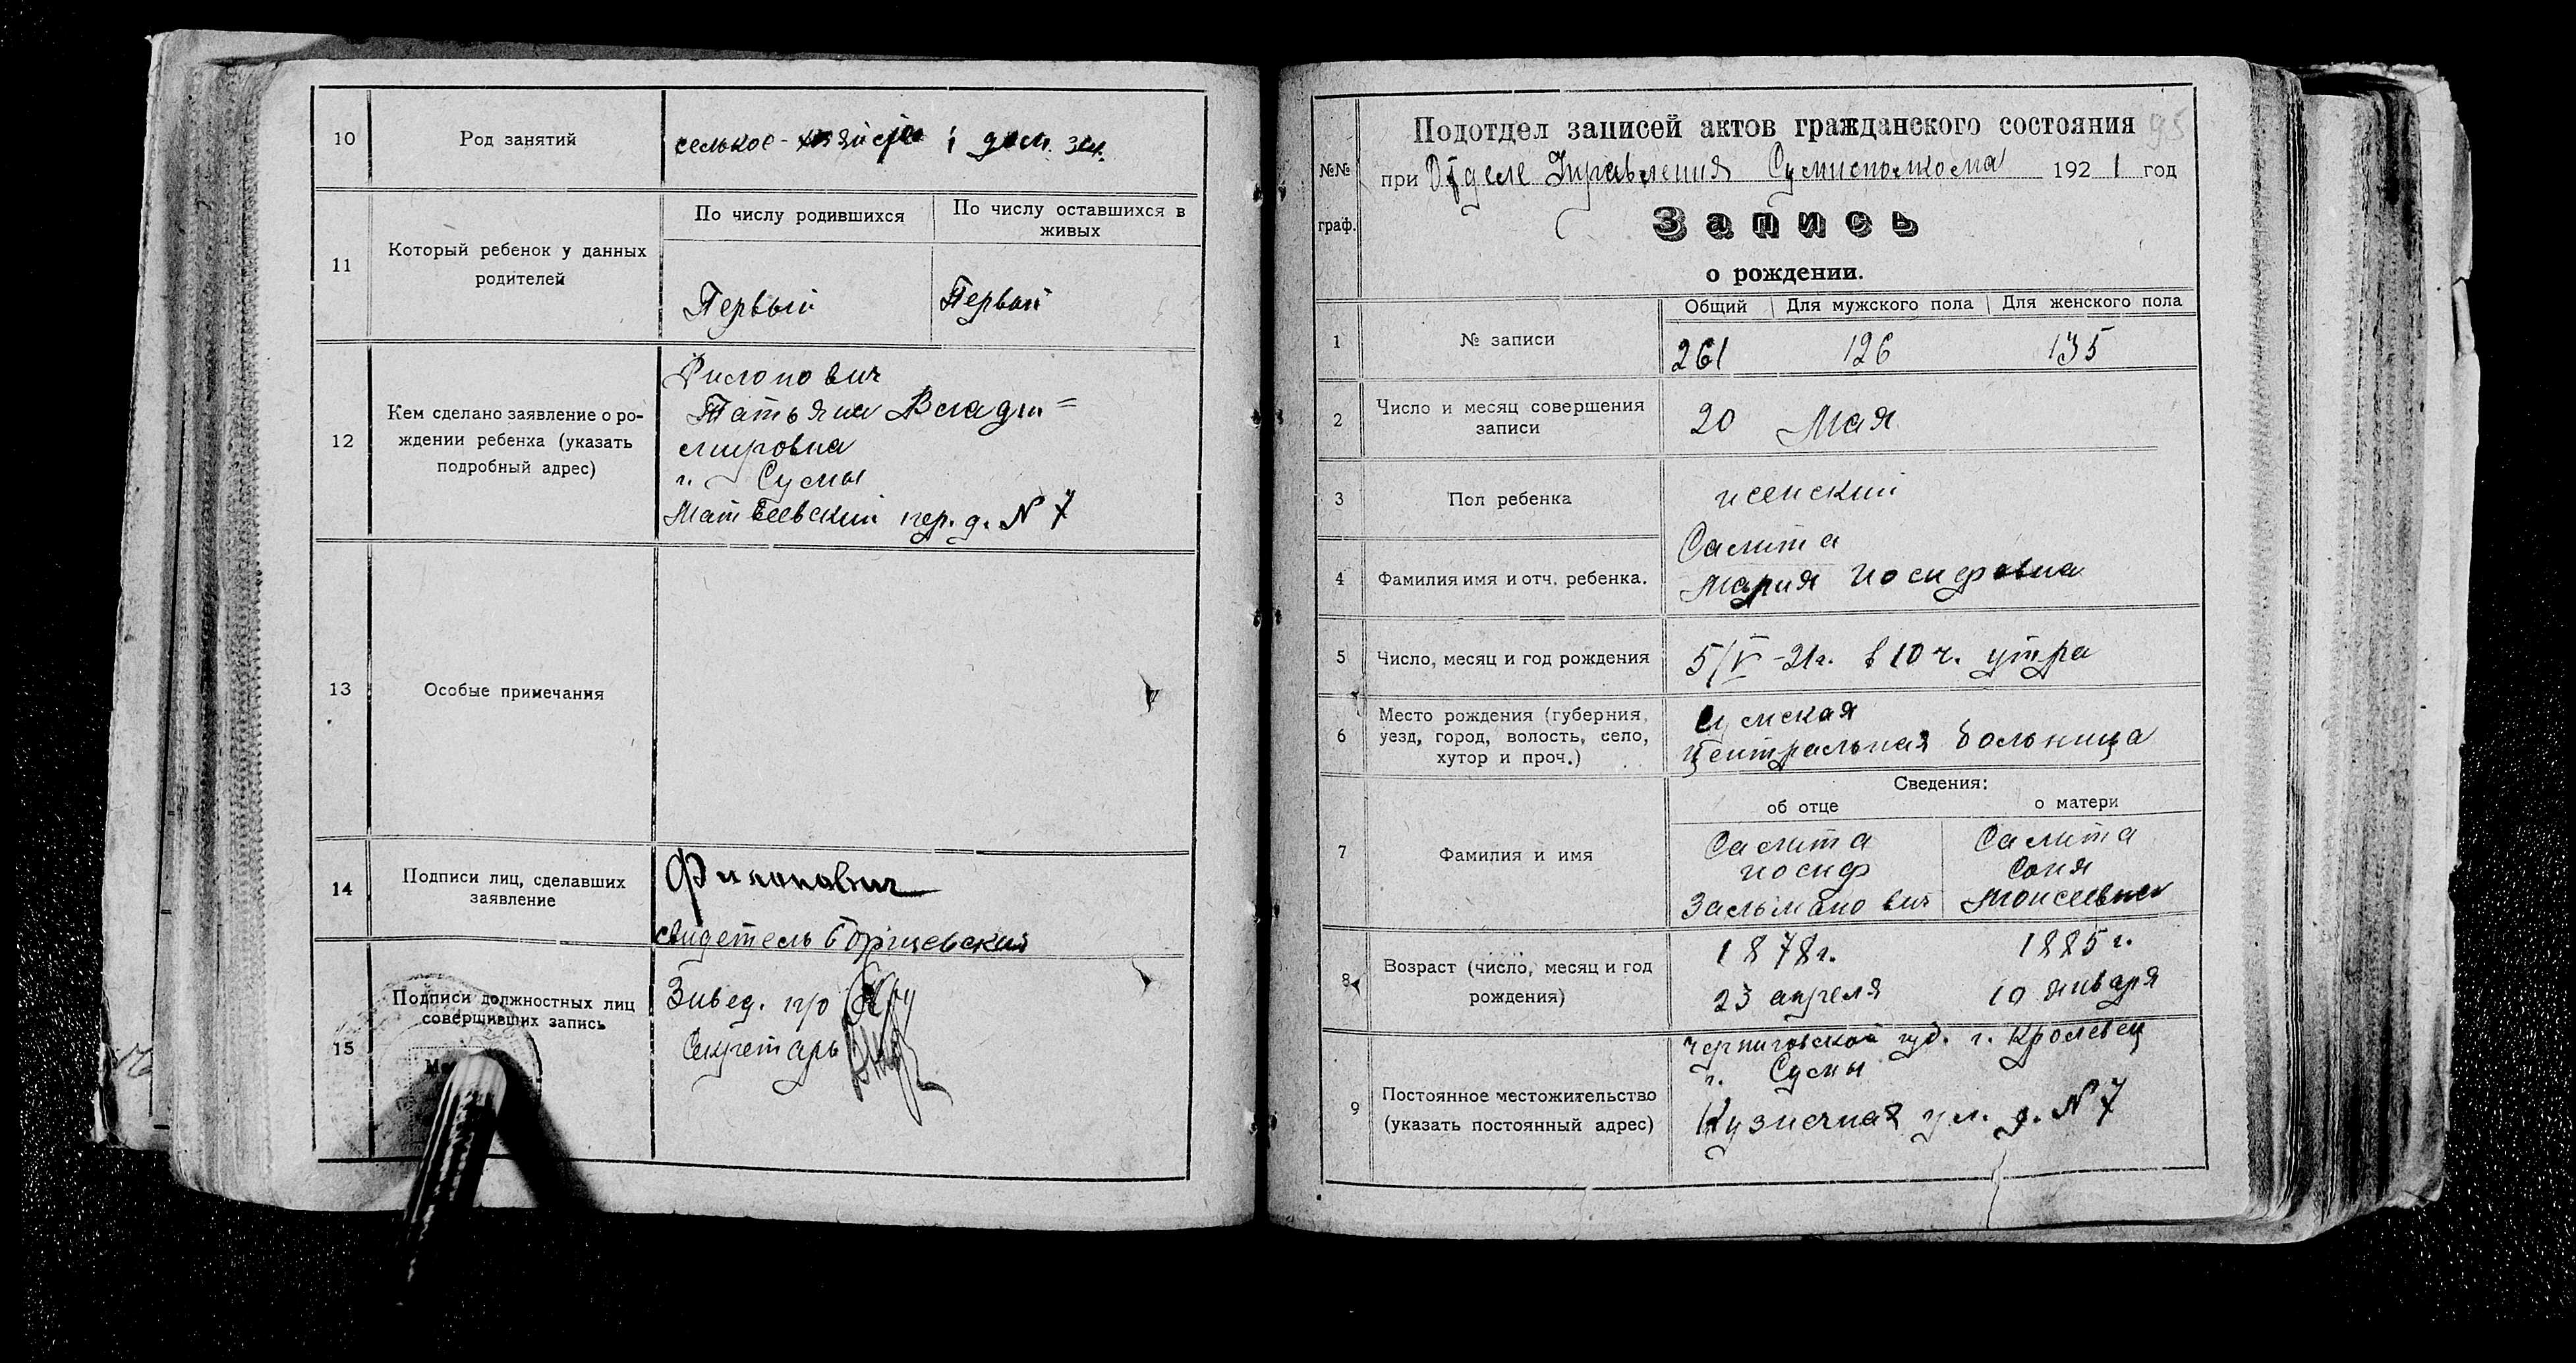 10
Род занятий
сельское-хозяйство i дом. зан.
11
Который ребенок у данных
родителей
По числу родившихся
По числу оставшихся в
живых
Первый
Первый
12
Кем сделано заявление о ро-
ждении ребенка (указать
подробный адрес)
Филонович
Татьяна Влади=
мировна
г. Сумы
Матвеевский пер. д. N 7
13
Особые примечания
14
Подписи лиц, сделавших
заявление
Филонович
свидетель Борщевский
15
Подписи должностных лиц
совершивших запись
Завед. п/о
Секретарь
95
№№
граф.
Подотдел записей актов гражданского состояния
при Отделе Управления Сумисполкома 1921 год
Запись
о рождении.
1
№ записи
Общий
Для мужского пола
Для женского пола
261
126
135
2
Число и месяц совершения
записи
20 Мая
3
Пол ребенка
женский
4
Фамилия имя и отч. ребенка.
Салита
Мария Иосифовна
5
Число, месяц и год рождения
5/V-21г. в 10 ч. утра
6
Место рождения (губерния,
уезд, город, волость, село,
хутор и проч.)
Сумская
Центральная больница
7
Фамилия и имя
Сведения:
об отце
о матери
Салита
Иосиф
Зальманович
Салита
Соня
Моисеевна
8
Возраст (число, месяц и год
рождения)
1878г.
23 апреля
1885г.
10 января
9
Постоянное местожительство
(указать постоянный адрес)
Черниговской губ. г. Кролевец
г. Сумы
Кузнечная ул. д. N 7